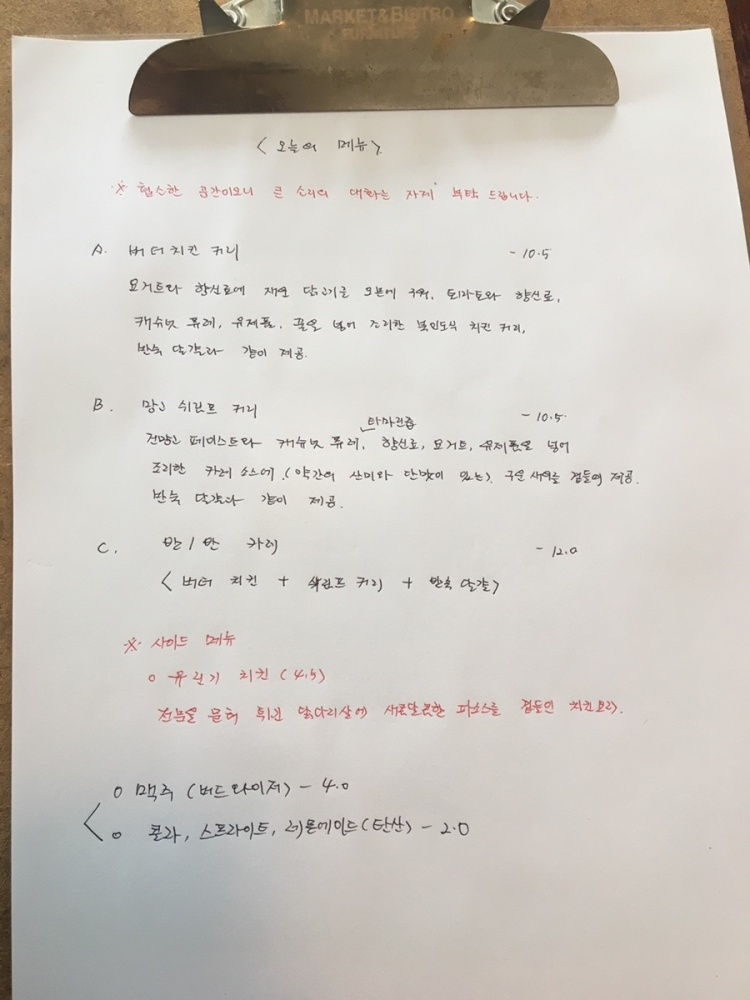 MARKET&BISTRO
<오늘의 메뉴>
※ 협소한 공간이오니 큰 소리의 대화는 자제 부탁 드립니다.
A. 버터치킨 커리 - 10.5
요거트와 향신료에 재운 닭고기를 오븐에 구워, 토마토와 향신료,
캐슈넛 퓨레, 유제품, 꿀을 넣어 조리한 북인도식 치킨 커리,
반숙 달걀과 같이 제공.
B. 망고 쉬림프 커리 - 10.5.
타마린즙
건망고 페이스트와 캐슈넛 퓨레, 향신료, 요거트, 유제품을 넣어
조리한 카레 소스에 (약간의 산미와 단맛이 있는) 구운 새우를 곁들여 제공.
반숙 달걀과 같이 제공.
C. 반/반 카레 - 12.0
<버터 치킨 + 쉬림프 커리 + 반숙 달걀>
※ 사이드 메뉴
o 유린기 치킨 (4.5)
전분을 묻혀 튀긴 닭다리살에 새콤달콤한 파소스를 곁들인 치킨요리.
o 맥주 (버드와이저) - 4.0
o 콜라, 스프라이트, 레몬에이드(탄산) - 2.0